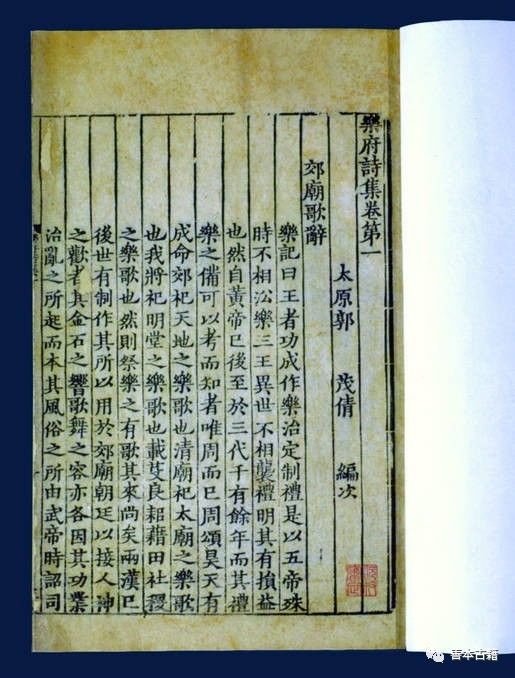 樂府詩集卷第一
太原郭 茂倩 編次
郊廟歌辭
樂記曰王者功成作樂治定制禮是以五帝殊
時不相㳂樂三王異世不相襲禮明其有損益
也然自黃帝已後至於三代千有餘年而其禮
樂之備可以考而知者唯周而已周頌昊天有
成命郊祀天地之樂歌也清廟祀太廟之樂歌
也我將祀明堂之樂歌也載芟良耜藉田社稷
之樂歌也然則祭樂之有歌其來尚矣兩漢已
後世有制作其所以用於郊廟朝廷以接人神
之歡者其金石之響歌舞之容亦各因其功業
治亂之所起而本其風俗之所由武帝時詔司
善本古籍